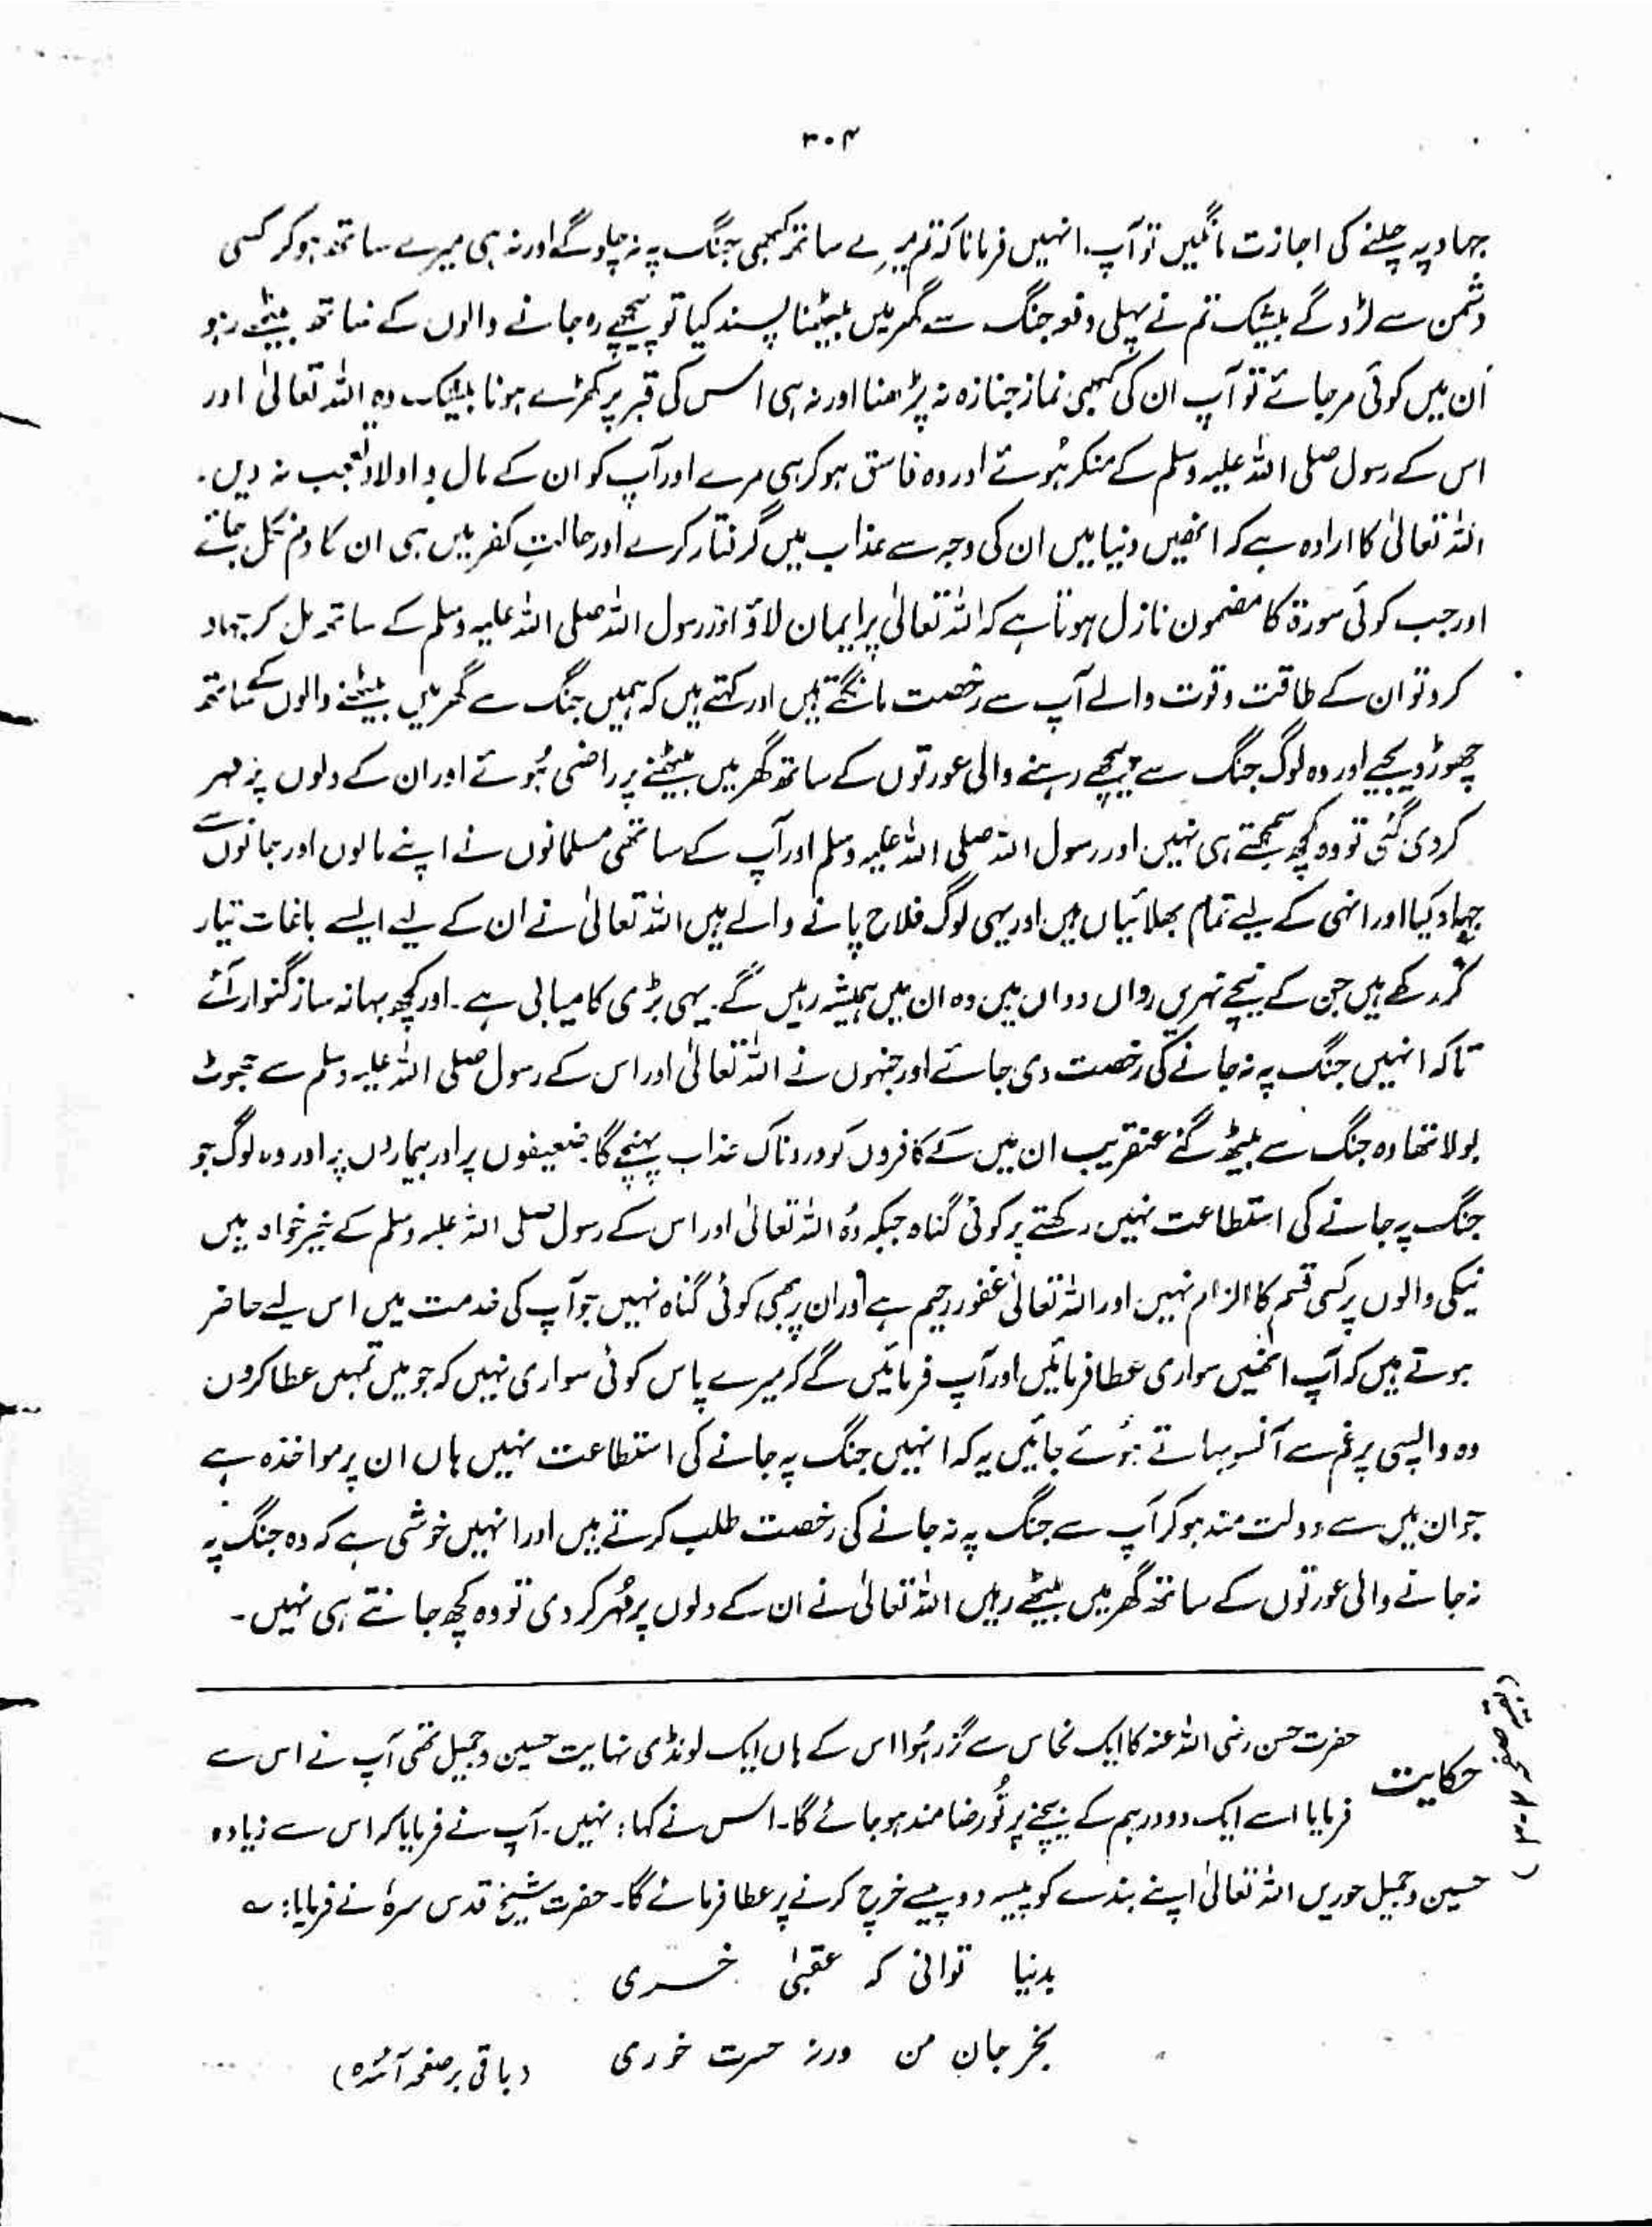 ۳۰۴
جہاد پہ چلنے کی اجازت مانگیں تو آپ انہیں فرمانا کہ تم میرے ساتھ کبھی جنگ پہ نہ چلو گے اور نہ ہی میرے ساتھ ہو کر کسی
دشمن سے لڑو گے بیشک تم نے پہلی دفعہ جنگ سے گھر میں بیٹھنا پسند کیا تو پیچھے رہ جانے والوں کے ساتھ بیٹھے رہو
اُن میں کوئی مر جائے تو آپ ان کی کبھی نماز جنازہ نہ پڑھنا اور نہ ہی اس کی قبر پر کھڑے ہونا بیشک وہ اللہ تعالیٰ اور
اس کے رسول صلی اللہ علیہ وسلم کے منکر ہُوئے اور وہ فاسق ہو کر ہی مرے اور آپ کو ان کے مال و اولاد تعجب نہ دیں۔
اللہ تعالیٰ کا ارادہ ہے کہ انھیں دنیا میں ان کی وجہ سے عذاب میں گرفتار کرے اور حالتِ کفر میں ہی ان کا دم نکل جائے
اور جب کوئی سورۃ کا مضمون نازل ہوتا ہے کہ اللہ تعالیٰ پر ایمان لاؤ اور رسول اللہ صلی اللہ علیہ وسلم کے ساتھ مل کر جہاد
کرو تو ان کے طاقت و قوت والے آپ سے رخصت مانگتے ہیں اور کہتے ہیں کہ ہمیں جنگ سے گھر میں بیٹھنے والوں کے ساتھ
چھوڑ دیجیے اور وہ لوگ جنگ سے پیچھے رہنے والی عورتوں کے ساتھ گھر میں بیٹھنے پر راضی ہُوئے اور ان کے دلوں پر مہر
کر دی گئی تو وہ کچھ سمجھتے ہی نہیں اور رسول اللہ صلی اللہ علیہ وسلم اور آپ کے ساتھی مسلمانوں نے اپنے مالوں اور جانوں سے
جہاد کیا اور انہی کے لیے تمام بھلائیاں ہیں اور یہی لوگ فلاح پانے والے ہیں اللہ تعالیٰ نے ان کے لیے ایسے باغات تیار
کر رکھے ہیں جن کے نیچے نہریں رواں دواں ہیں وہ ان میں ہمیشہ رہیں گے۔ یہی بڑی کامیابی ہے۔ اور کچھ بہانہ ساز گنوار آئے
تاکہ انہیں جنگ پہ نہ جانے کی رخصت دی جائے اور جنہوں نے اللہ تعالیٰ اور اس کے رسول صلی اللہ علیہ وسلم سے جھوٹ
بولا تھا وہ جنگ سے بیٹھ گئے عنقریب ان میں کے کافروں کو دردناک عذاب پہنچے گا۔ ضعیفوں پر اور بیماروں پر اور وہ لوگ جو
جنگ پر جانے کی استطاعت نہیں رکھتے پر کوئی گناہ جبکہ وُہ اللہ تعالیٰ اور اس کے رسول صلی اللہ علیہ وسلم کے خیر خواہ ہیں
نیکی والوں پر کسی قسم کا الزام نہیں اور اللہ تعالیٰ غفور رحیم ہے اور ان پر بھی کوئی گناہ نہیں جو آپ کی خدمت میں اس لیے حاضر
ہوتے ہیں کہ آپ انھیں سواری عطا فرمائیں اور آپ فرمائیں گے کہ میرے پاس کوئی سواری نہیں کہ جو میں تمہیں عطا کروں
وہ واپسی پر غم سے آنسو بہاتے ہُوئے جائیں یہ کہ انہیں جنگ پہ جانے کی استطاعت نہیں ہاں ان پر مواخذہ ہے
جو ان میں سے دولت مند ہو کر آپ سے جنگ پہ نہ جانے کی رخصت طلب کرتے ہیں اور انہیں خوشی ہے کہ وہ جنگ پہ
نہ جانے والی عورتوں کے ساتھ گھر میں بیٹھے رہیں اللہ تعالیٰ نے ان کے دلوں پر مُہر کر دی تو وہ کچھ جانتے ہی نہیں۔
(بقیہ صفحہ ۳۰۳)
حکایت حضرت حسن رضی اللہ عنہ کا ایک نخاس سے گزر ہُوا اس کے ہاں ایک لونڈی نہایت حسین و جمیل تھی آپ نے اس سے
فرمایا اسے ایک دو درہم کے بیچنے پر تُو رضامند ہو جائے گا۔ اس نے کہا: نہیں۔ آپ نے فرمایا کہ اس سے زیادہ
حسین و جمیل حوریں اللہ تعالیٰ اپنے بندے کو پیسہ دو پیسے خرچ کرنے پر عطا فرمائے گا۔ حضرت شیخ قدس سرہٗ نے فرمایا: ؎
بدنیا توانی کہ عقبیٰ خری
بخر جان من ورنہ حسرت خوری
(باقی بر صفحہ آئندہ)